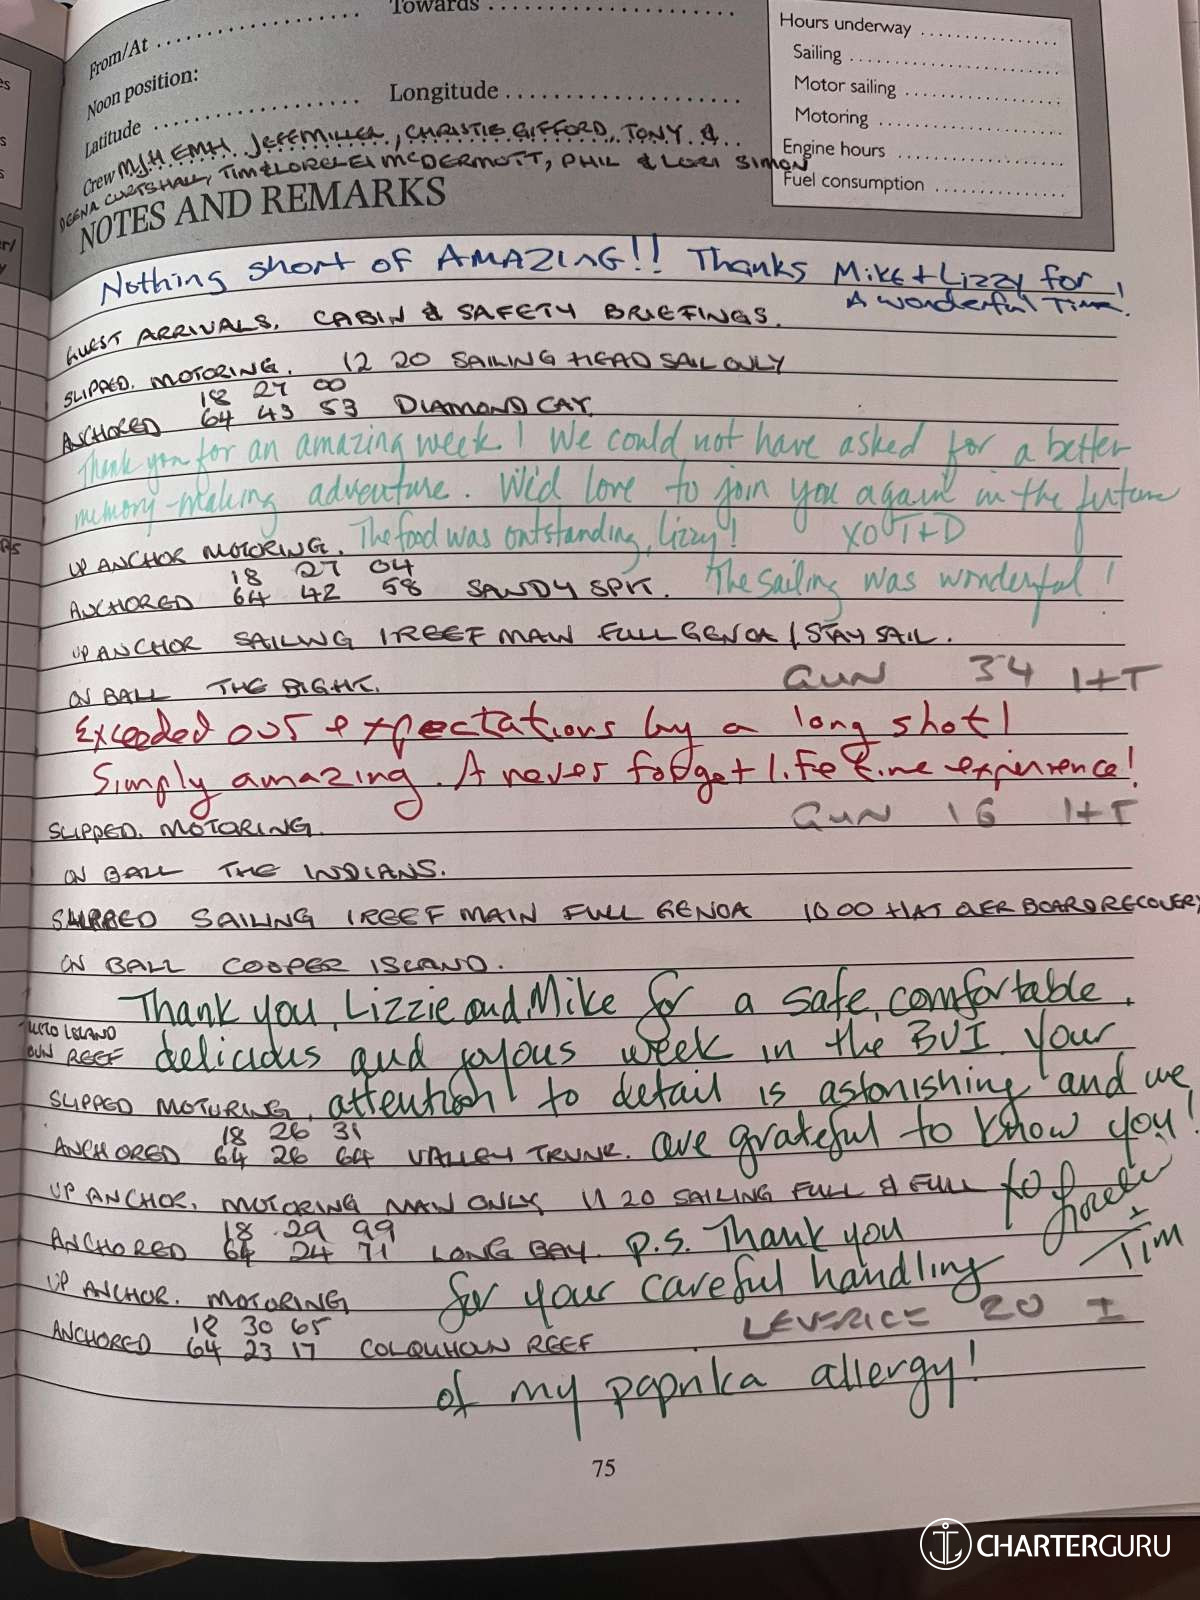 From/At Towards
Noon position:
Latitude Longitude
Hours underway
Sailing
Motor sailing
Motoring
Engine hours
Fuel consumption
Crew MJH EMH JEFF MILLER, CHRISTIE GIFFORD, TONY &
DEENA CURTSHALL, TIM & LORELEI MCDERMOTT, PHIL & LORI SIMON
NOTES AND REMARKS
Nothing short of AMAZING!! Thanks Mike + Lizzy for
A wonderful Time!
GUEST ARRIVALS. CABIN & SAFETY BRIEFINGS.
SLIPPED. MOTORING. 12 20 SAILING HEAD SAIL ONLY
18 27 00
ANCHORED 64 43 53 DIAMOND CAY.
Thank you for an amazing week! We could not have asked for a better
memory-making adventure. We'd love to join you again in the future
UP ANCHOR MOTORING. The food was outstanding, Lizzy! XO T+D
18 27 04
ANCHORED 64 42 58 SANDY SPIT. The sailing was wonderful!
UP ANCHOR SAILING 1 REEF MAIN FULL GENOA / STAY SAIL.
ON BALL THE BIGHT. GUN 34 I+T
Exceeded our expectations by a long shot!
Simply amazing. A never forget life time experience!
SLIPPED. MOTORING. GUN 16 I+T
ON BALL THE INDIANS.
SLIPPED SAILING 1 REEF MAIN FULL GENOA 10 00 HAT OVER BOARD RECOVERY
ON BALL COOPER ISLAND.
Thank you, Lizzie and Mike for a safe, comfortable,
ISLAND
REEF delicious and joyous week in the BVI. Your
SLIPPED MOTORING. attention to detail is astonishing and we
18 26 31
ANCHORED 64 26 64 VALLEY TRUNK. are grateful to know you!
UP ANCHOR. MOTORING MAIN ONLY, 11 20 SAILING FULL & FULL XO Lorelei
18 29 99
ANCHORED 64 24 71 LONG BAY. p.s. Thank you + Tim
UP ANCHOR. MOTORING for your careful handling
18 30 65 LEVERICE 20 I
ANCHORED 64 23 17 COLQUHOUN REEF
of my paprika allergy!
75
CHARTERGURU